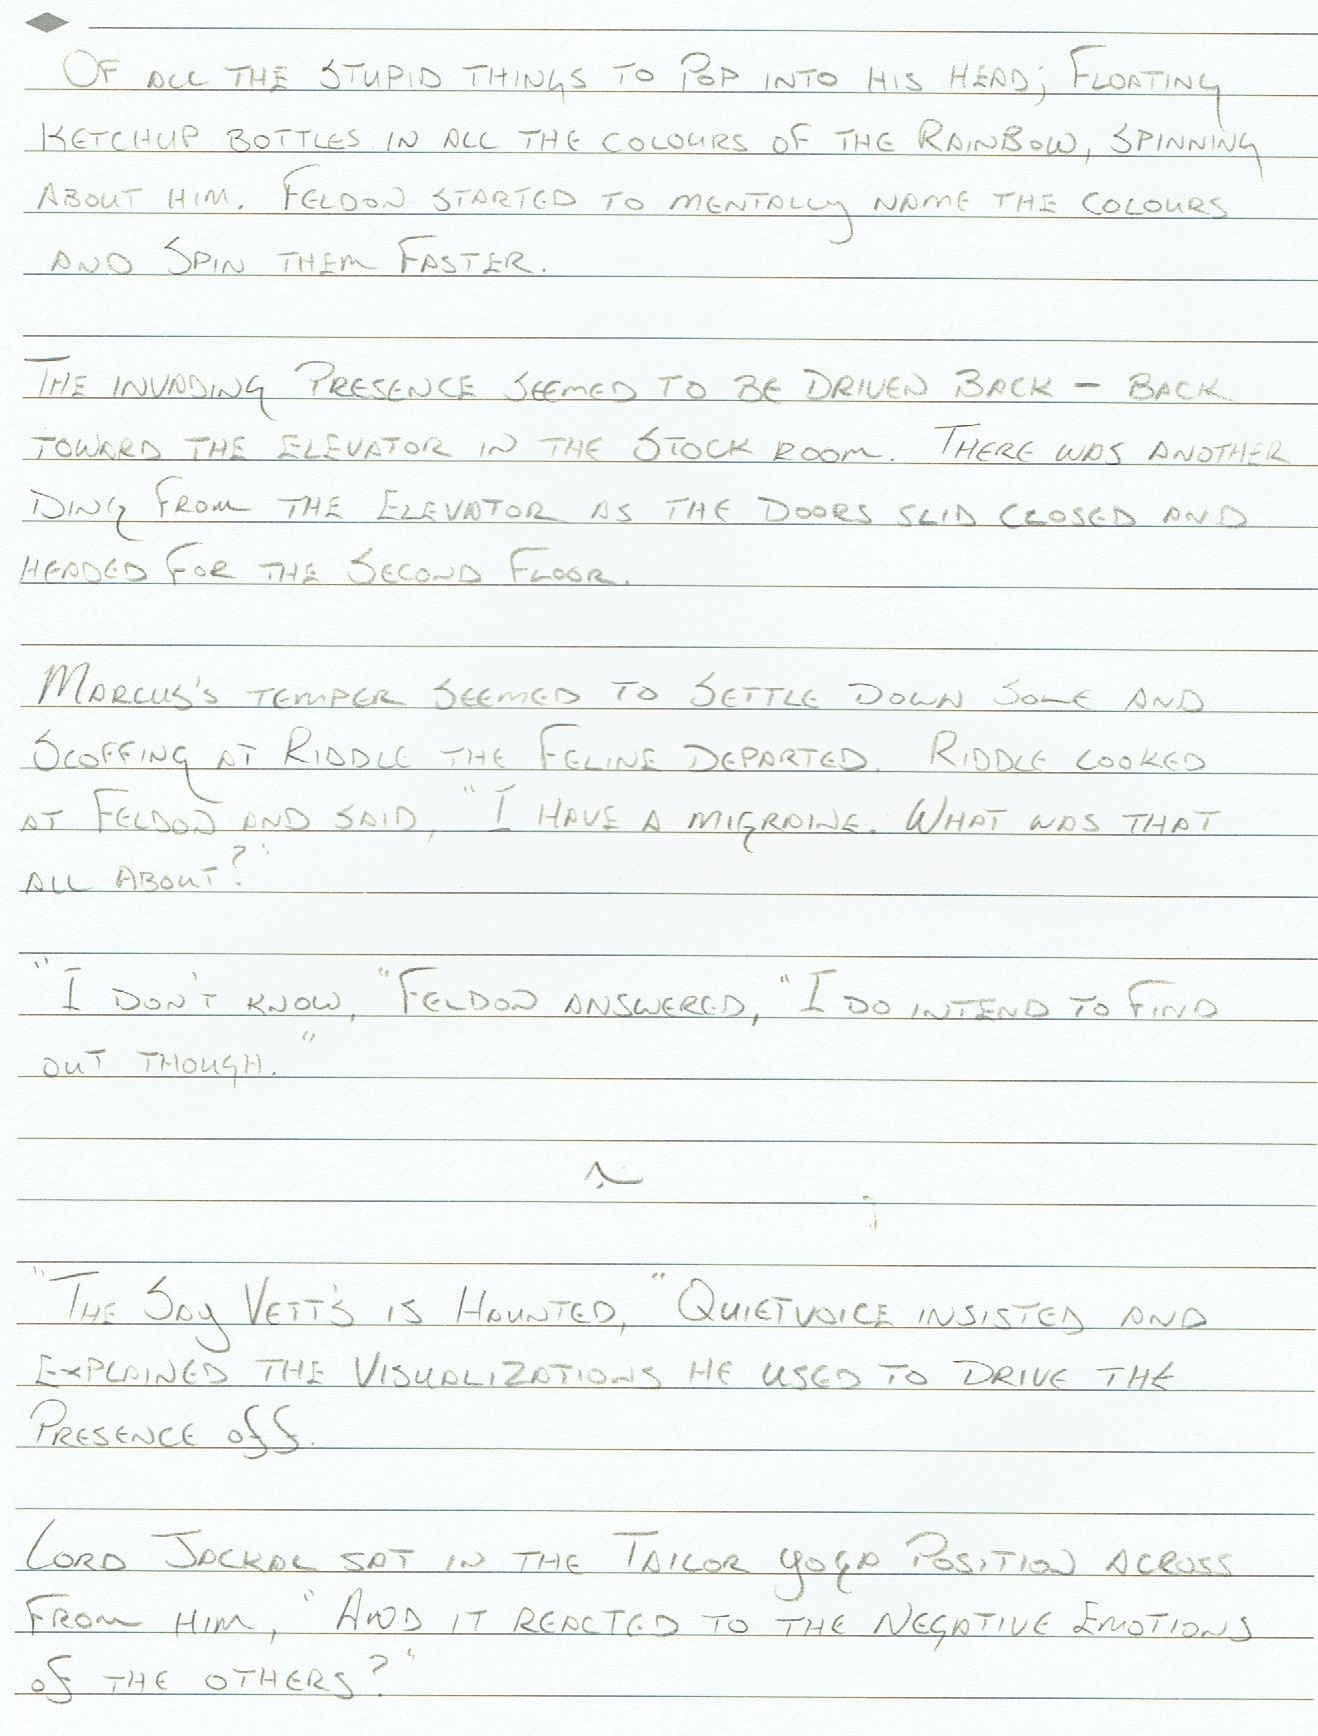 Of all the stupid things to Pop into his head; Floating
Ketchup bottles in all the colours of the RainBow, spinning
About him. Feldon started to mentally name the colours
and Spin them Faster.
The invading Presence seemed to be Driven Back - Back
toward the elevator in the Stock room. There was another
Ding From the Elevator as the Doors slid closed and
headed For the Second Floor.
Marcus's temper seemed to Settle Down Some and
Scoffing at Riddle the Feline Departed. Riddle looked
at Feldon and said, "I have a migraine. What was that
all About?"
"I don't know," Feldon answered, "I do intend to Find
out though."
~
"The Soy Vett's is Haunted," Quietvoice insisted and
explained the Visualizations he used to Drive the
Presence off.
Lord Jackal sat in the Tailor yoga Position across
From him, "And it reacted to the Negative Emotions
of the others?"